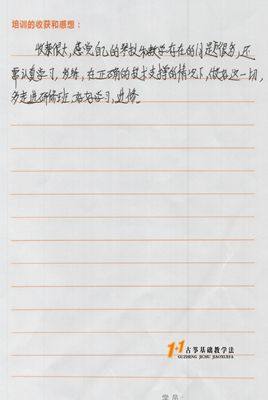 培训的收获和感想：
收获很大，感觉自己的琴技和教学存在的问题很多，还
需认真学习，发练，在正确的技术支撑的情况下，做好这一切，
多走进研修班，好好学习，进修。
1+1 古筝基础教学法
GUZHENG JICHU JIAOXUEFA
学员：